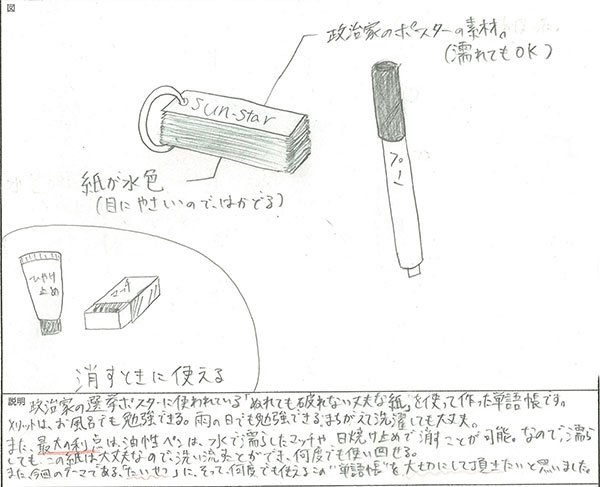 図
政治家のポスターの素材。
(濡れてもOK)
sun-star
プロ
紙が水色
(目にやさしいので、はかどる)
ひやけ
止め
マッチ
消すときに使える
説明
政治家の選挙ポスターに使われている「ぬれても破れない丈夫な紙」を使って作った単語帳です。
メリットは、お風呂でも勉強できる。雨の日でも勉強できる。まちがえて洗濯しても大丈夫。
また、最大の利点は、油性ペンは、水で濡らしたマッチや、日焼け止めで消すことが可能。なので、濡ら
しても、この紙は大丈夫なので洗い流すことができ、何度でも使い回せる。
また今回のテーマである、「たいせつ」に、そって、何度でも使えるこの"単語帳"を大切にして頂きたいと思いました。